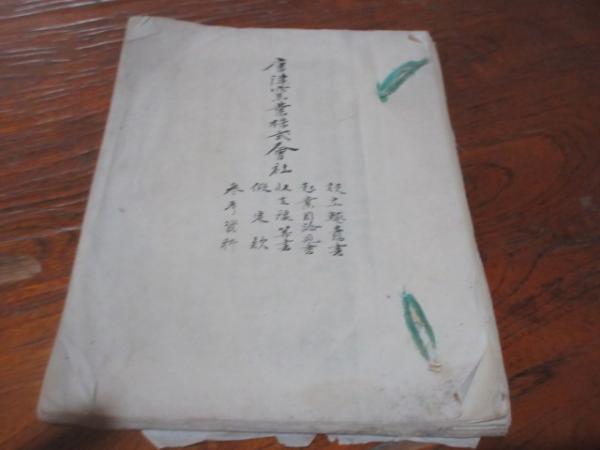 唐津窯業株式會社
設立趣意書
起業目論見書
收支豫算書
假定款
参考資料